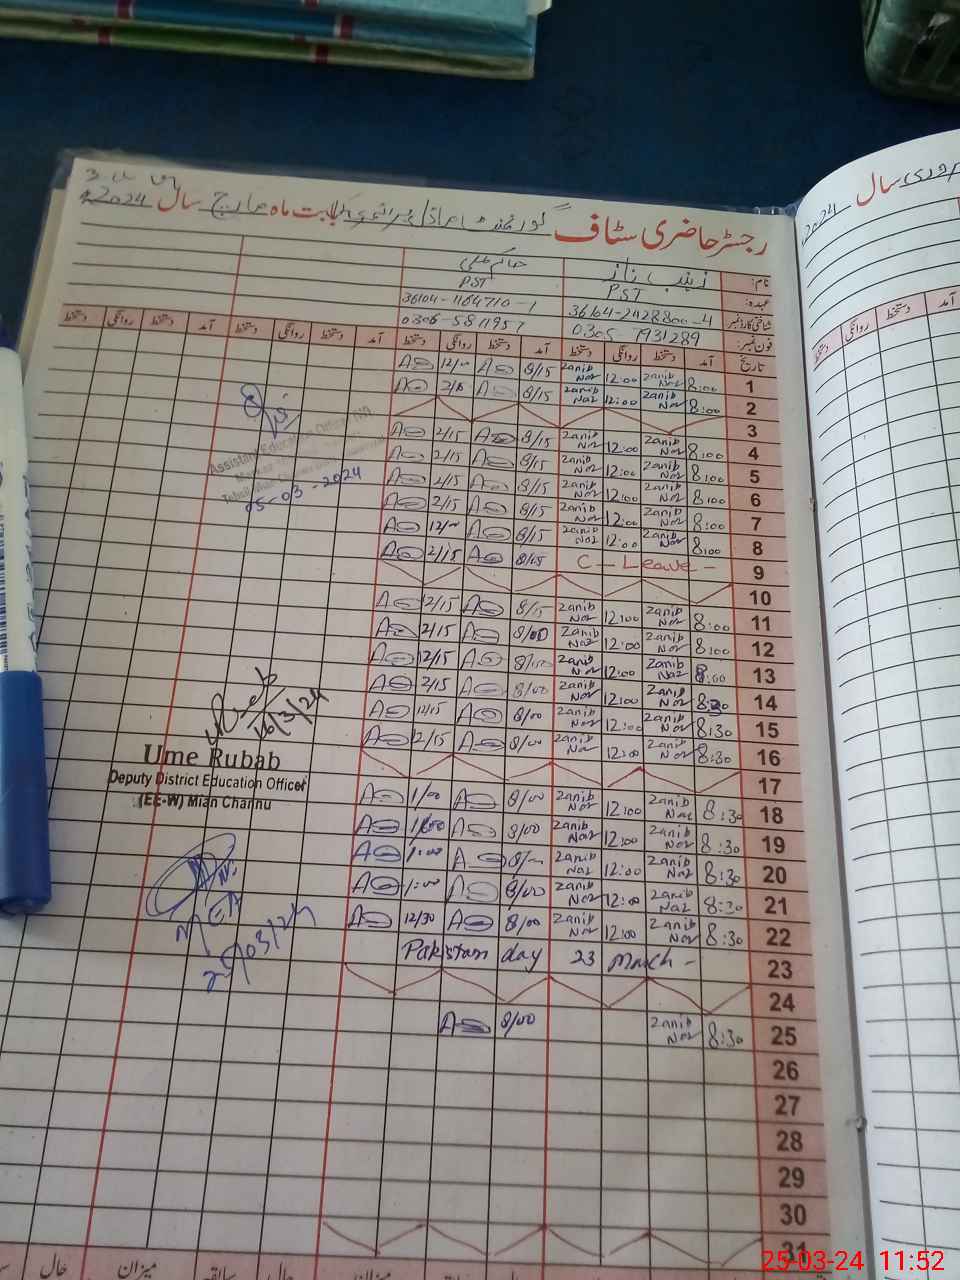 رجسٹر حاضری سٹاف بابت ماہ مارچ سال 2024
نام: زینب ناز
عہدہ: PST PST
شناختی کارڈ نمبر 36104-1164710-1
فون نمبر: 0305-7931289
تاریخ آمد دستخط روانگی دستخط آمد دستخط روانگی دستخط آمد دستخط روانگی دستخط آمد دستخط روانگی دستخط
1 8:00 Zanib Naz 12:00 Zanib Naz 8/15
2 8:00 Zanib Naz 12:00 Zanib Naz 8/15
3
4 8:00 Zanib Naz 12:00 Zanib Naz 8/15 2/15
5 8:00 Zanib Naz 12:00 Zanib Naz 8/15 2/15
6 8:00 Zanib Naz 12:00 Zanib Naz 8/15 2/15
7 8:00 Zanib Naz 12:00 Zanib Naz 8/15 2/15
8 8:00 Zanib Naz 12:00 Zanib Naz 8/15
9 C - Leave - 8/15 2/15
10
11 8:00 Zanib Naz 12:00 Zanib Naz 8/15 12/15
12 8:00 Zanib Naz 12:00 Zanib Naz 8/00 2/15
13 8:00 Zanib Naz 12:00 Zanib Naz 8/00 12/15
14 8:30 Zanib Naz 12:00 Zanib Naz 8/00 2/15
15 8:30 Zanib Naz 12:00 Zanib Naz 8/00 12/15
16 8:30 Zanib Naz 12:00 Zanib Naz 8/00 12/15
17
18 8:30 Zanib Naz 12:00 Zanib Naz 8/00 1/00
19 8:30 Zanib Naz 12:00 Zanib Naz 8/00
20 8:30 Zanib Naz 12:00 Zanib Naz 1:00
21 8:30 Zanib Naz 12:00 Zanib Naz 8/00 1:00
22 8:30 Zanib Naz 12:00 Zanib Naz 8/00 12/30
23 Pakistan day 23 March -
24
25 8:30 Zanib Naz 8/00
26
27
28
29
30
31
Assistant Education Officer
05-03-2024
16/3/24
Ume Rubab
Deputy District Education Officer
(EE-W) Mian Channu
میزان حال
سال 2024
آمد دستخط روانگی دستخط
25-03-24 11:52